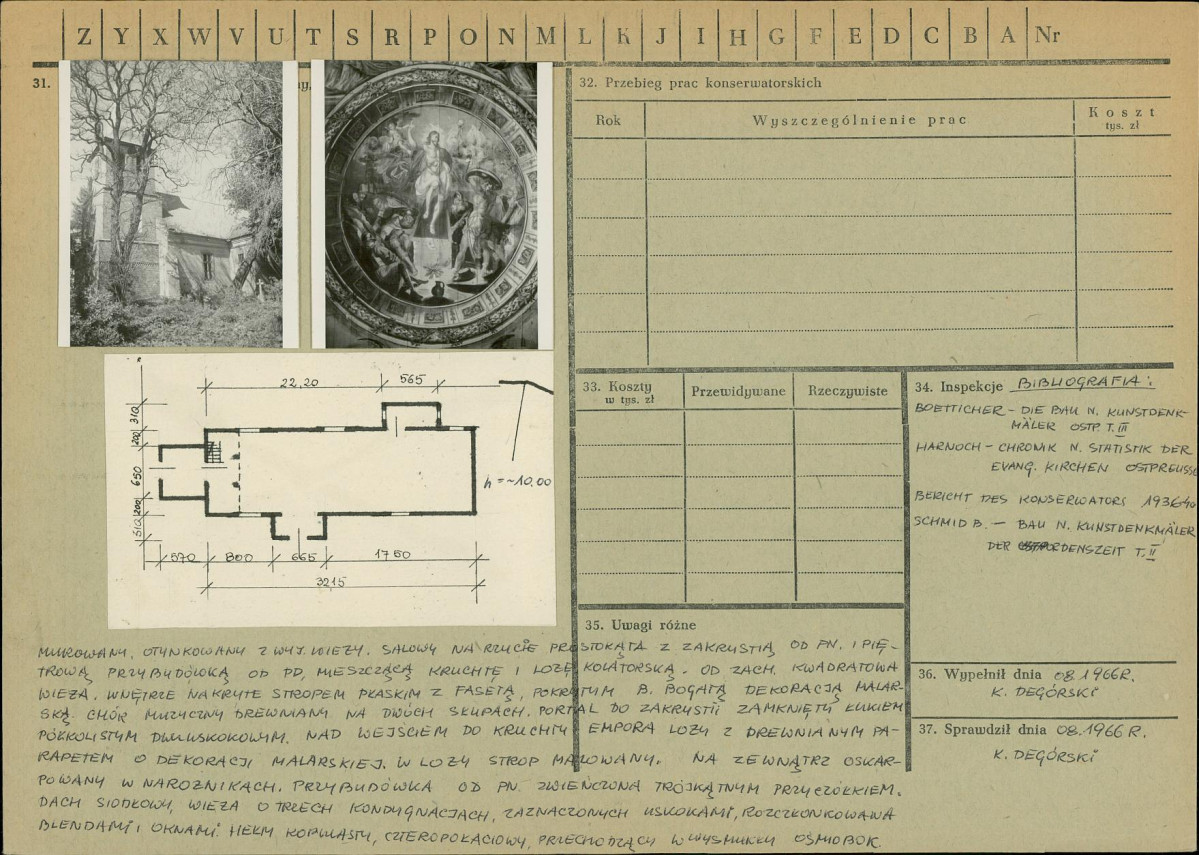 Z Y X W V U T S R P O N M L K J I H G F E D C B A Nr
31.
32. Przebieg prac konserwatorskich
Rok
Wyszczególnienie prac
Koszt
tys. zł
22,20
565
310
200
650
200
310
h = ~10.00
570
800
665
1750
3215
33. Koszty
w tys. zł
Przewidywane
Rzeczywiste
34. Inspekcje BIBLIOGRAFIA:
BOETTICHER - DIE BAU N. KUNSTDENK-
MÄLER OSTP. T. III
HARNOCH - CHRONIK N. STATISTIK DER
EVANG. KIRCHEN OSTPREUSSE
BERICHT DES KONSERWATORS 1936-40
SCHMID B. - BAU N. KUNSTDENKMÄLER
DER ORDENSZEIT T. II
35. Uwagi różne
MUROWANY, OTYNKOWANY Z WYJ. WIEŻY. SALOWY NA RZUCIE PROSTOKĄTA Z ZAKRYSTIĄ OD PN. I PIĘ-
TROWĄ PRZYBUDÓWKĄ OD PD, MIESZCZĄCĄ KRUCHTĘ I LOŻĘ KOLATORSKĄ. OD ZACH. KWADRATOWA
WIEŻA. WNĘTRZE NAKRYTE STROPEM PŁASKIM Z FASETĄ, POKRYTYM B. BOGATĄ DEKORACJĄ MALAR-
SKĄ. CHÓR MUZYCZNY DREWNIANY NA DWÓCH SŁUPACH. PORTAL DO ZAKRYSTII ZAMKNIĘTY ŁUKIEM
PÓŁKOLISTYM DWUUSKOKOWYM. NAD WEJŚCIEM DO KRUCHTY EMPORA LOŻY Z DREWNIANYM PA-
RAPETEM O DEKORACJI MALARSKIEJ. W LOŻY STROP MALOWANY. NA ZEWNĄTRZ OSKAR-
POWANY W NAROŻNIKACH. PRZYBUDÓWKA OD PN. ZWIEŃCZONA TRÓJKĄTNYM PRZYCZÓŁKIEM.
DACH SIODŁOWY, WIEŻA O TRZECH KONDYGNACJACH, ZAZNACZONYCH USKOKAMI, ROZCZŁONKOWANA
BLENDAMI I OKNAMI. HEŁM KOPULASTY, CZTEROPOŁACIOWY, PRZECHODZĄCY W WYSMUKŁY OŚMIOBOK.
36. Wypełnił dnia 08.1966R.
K. DEGÓRSKI
37. Sprawdził dnia 08.1966R.
K. DEGÓRSKI